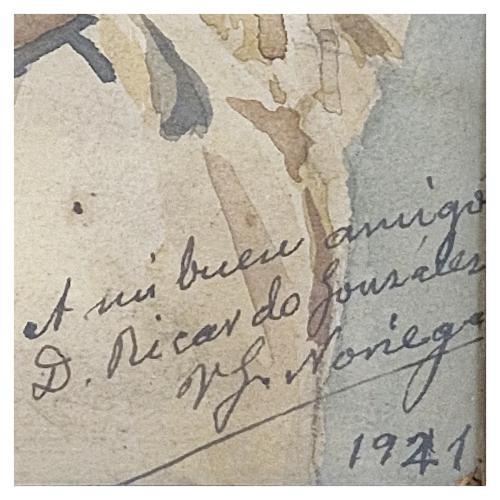 A mi buen amigo
D. Ricardo González
V. G. Noriega
1921